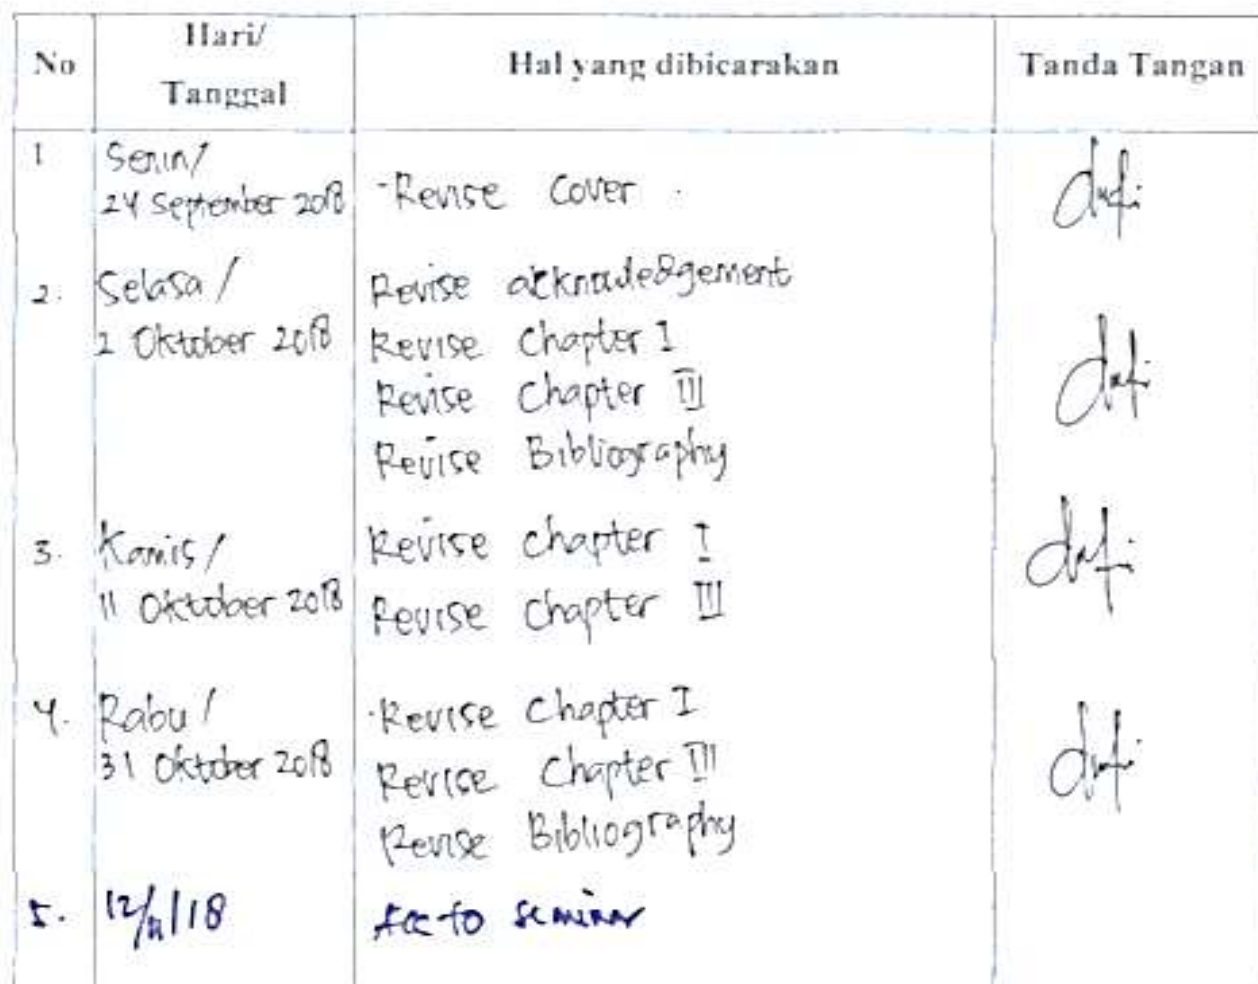 No
Hari/
Tanggal
Hal yang dibicarakan
Tanda Tangan
1
Senin/
24 September 2018
-Revise Cover
2.
Selasa /
2 Oktober 2018
Revise acknowledgement
Revise Chapter I
Revise Chapter III
Revise Bibliography
3.
Kamis/
11 Oktober 2018
Revise Chapter I
Revise Chapter III
4.
Rabu /
31 Oktober 2018
-Revise Chapter I
Revise Chapter III
Revise Bibliography
5.
Acc to seminar